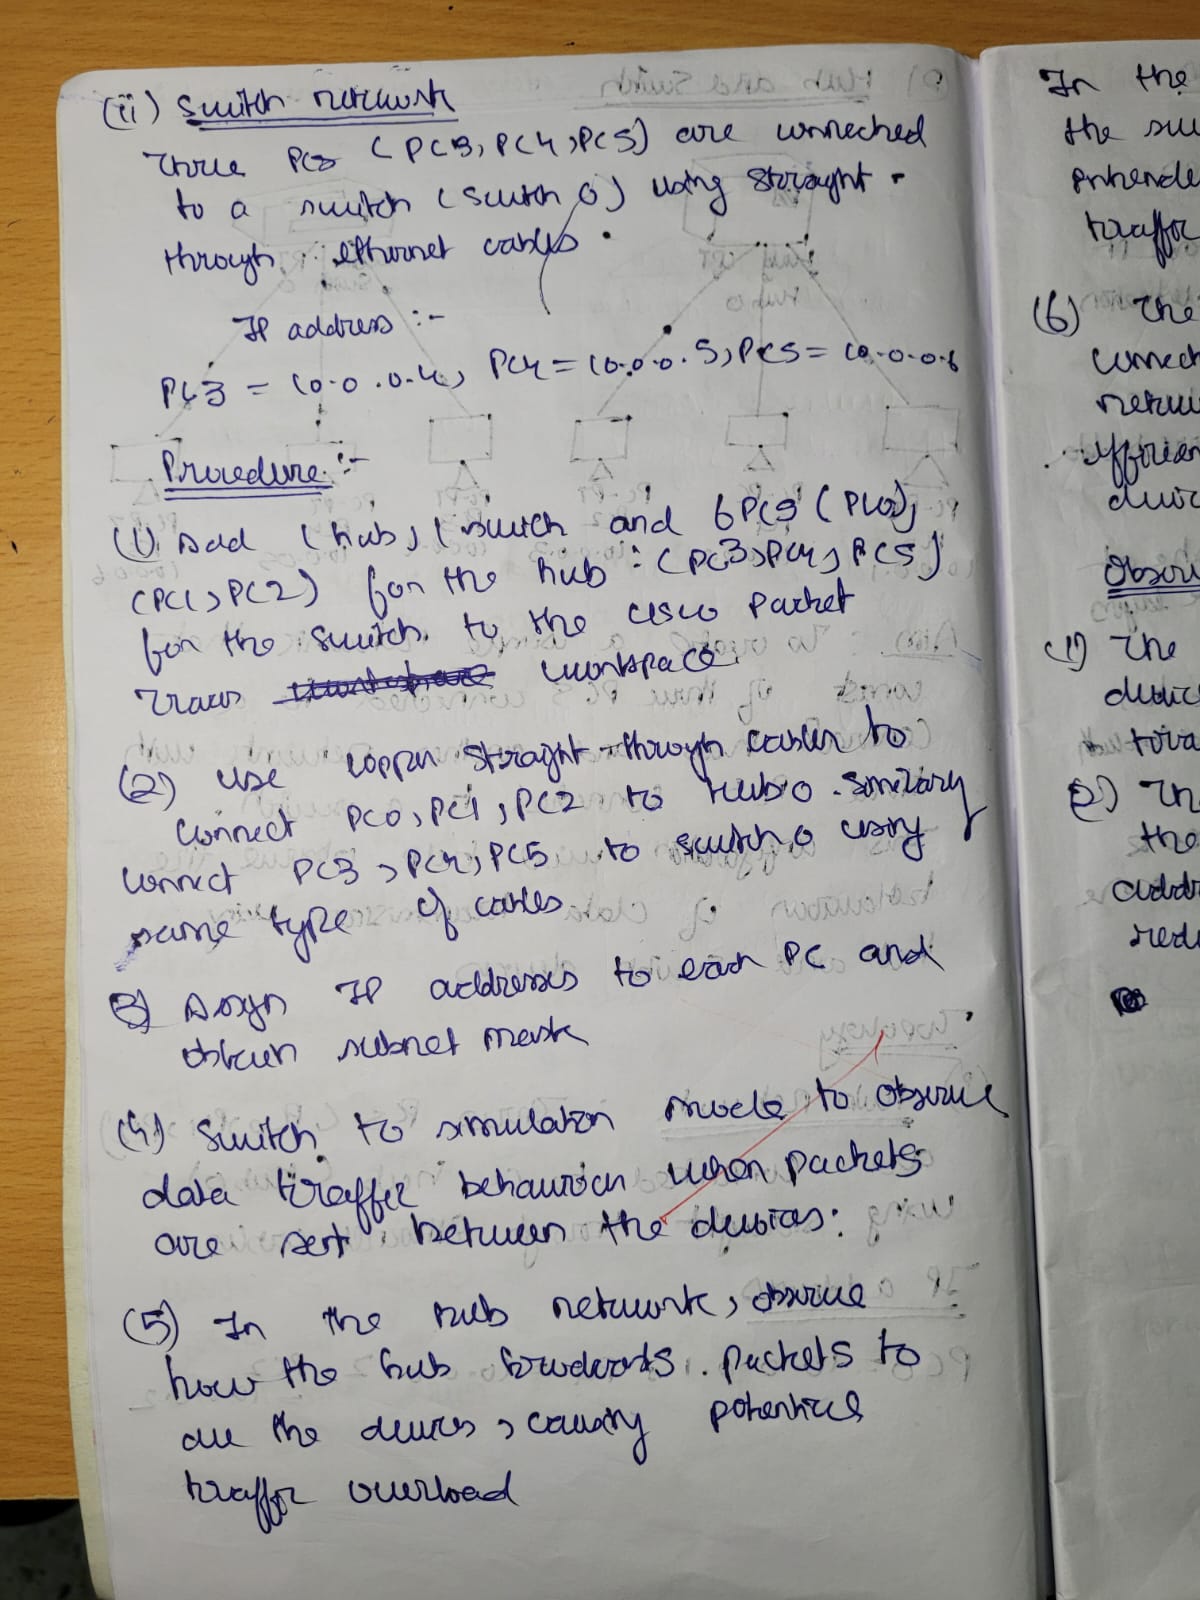 (ii) Switch network
Three PCs (PC3, PC4, PC5) are connected
to a switch (Switch 0) using straight -
through ethernet cables.
IP address :-
PC3 = 10.0.0.4, PC4 = 10.0.0.5, PC5 = 10.0.0.6
Procedure :-
(1) Add 1 hub, 1 switch and 6 PCs (PC0,
(PC1, PC2) for the hub : (PC3, PC4, PC5)
for the switch. to the cisco Packet
workspace.
(2) Use copper straight-through cables to
connect PC0, PC1, PC2 to Hub 0.
connect PC3, PC4, PC5 to switch 0 using
same type of cables
3) Assign IP addresses to each PC and
subnet mask
(4) Switch to simulation mode to observe
data traffic when packets
are sent between the devices.
(5) In the hub network, observe
how the hub packets to
all the devices, causing potential
traffic overload
In the
the
traffic
(6) The
(1) The
2)
the